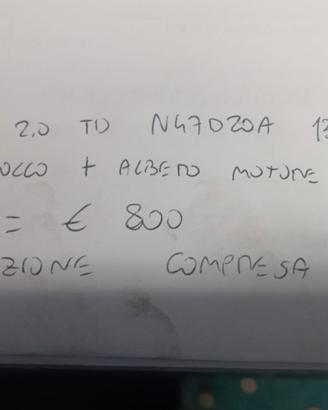 2.0 TD N47D20A 13
OCCO + ALBERO MOTORE
= € 800
ZIONE COMPRESA